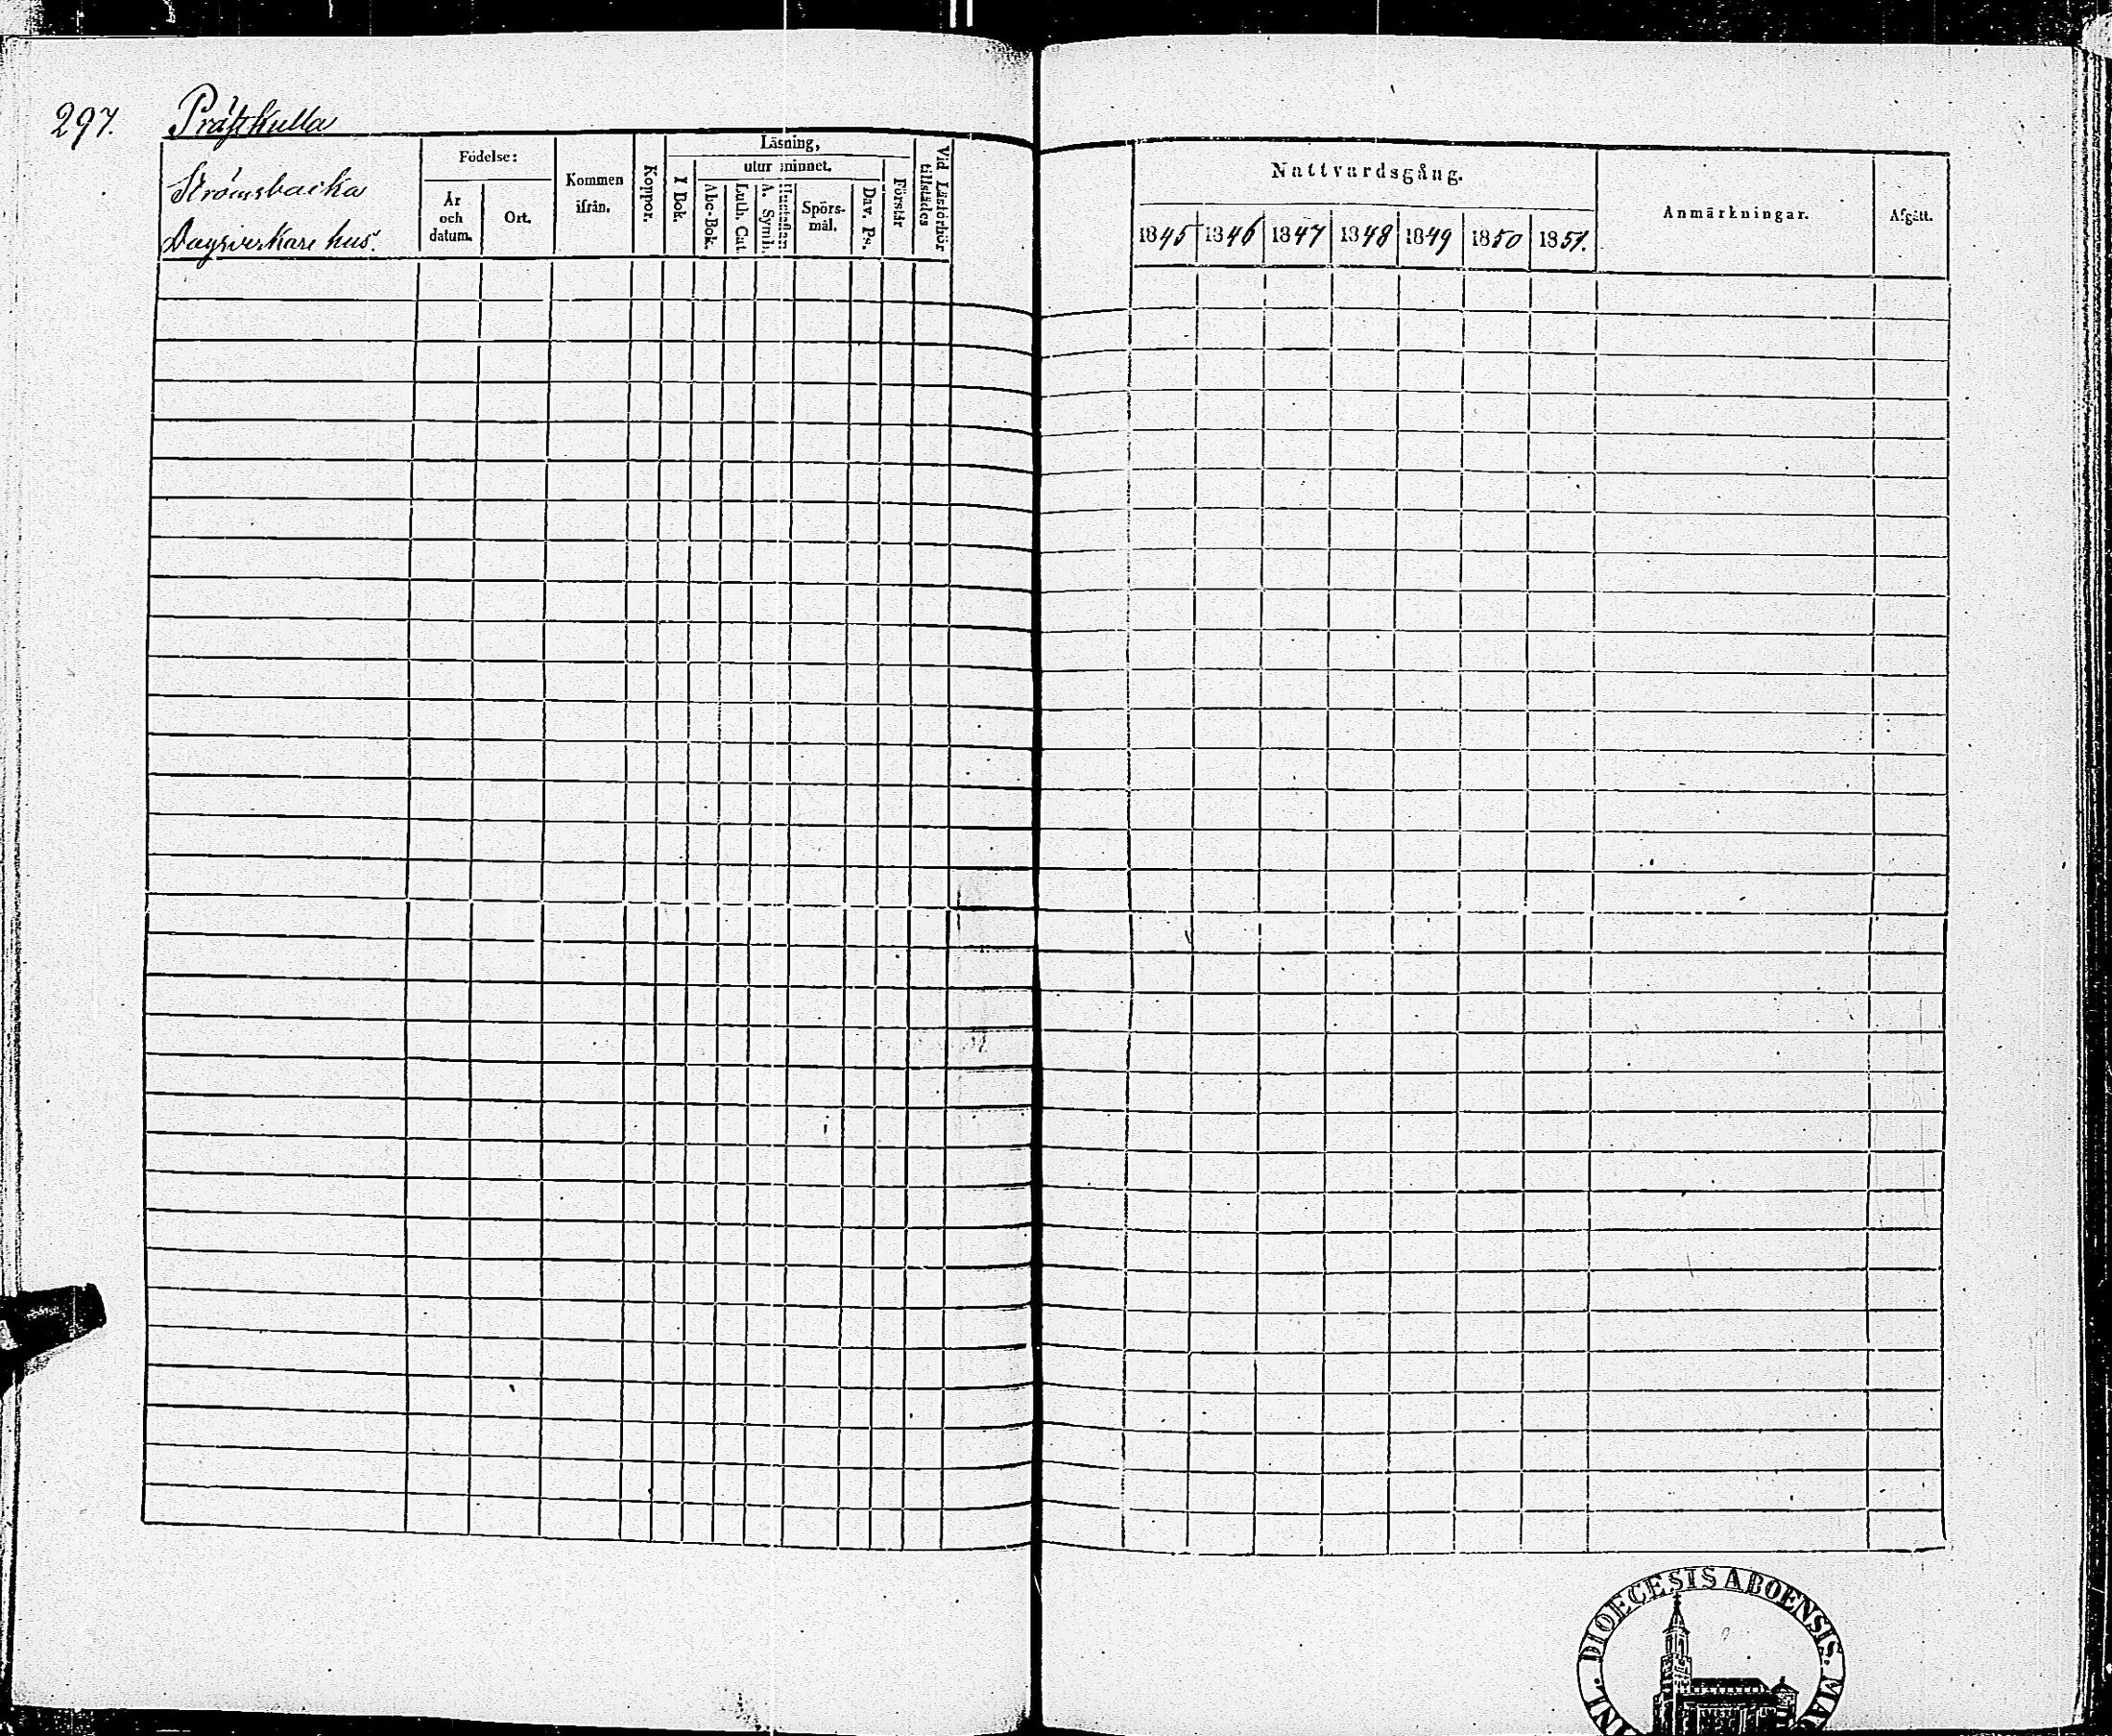 297. Prästkulla
Strömsbacka
Dagsverkare hus.
Födelse:
År och datum.
Ort.
Kommen ifrån.
Koppor.
Läsning,
I Bok.
utur minnet.
Abc-Bok.
Luth. Cat.
A. Symb.
Hustaflan
Spörsmål.
Dav. Ps.
Förstår
Vid Läsförhör tillstädes
Nattvardsgång.
1845 1846 1847 1848 1849 1850 1851.
Anmärkningar.
Afgått.
DIOECESIS ABOENSIS.